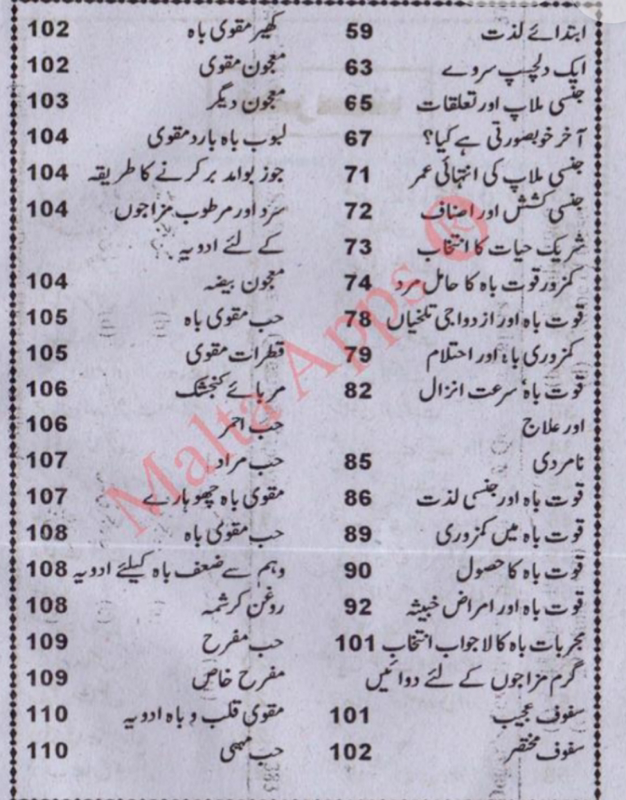 ابتدائے لذت 59
ایک دلچسپ سروے 63
جنسی ملاپ اور تعلقات 65
آخر خوبصورتی ہے کیا؟ 67
جنسی ملاپ کی انتہائی عمر 71
جنسی کشش اور اصناف 72
شریک حیات کا انتخاب 73
کمزور قوت باہ کا حامل مرد 74
قوت باہ اور ازدواجی تلخیاں 78
کمزوری باہ اور احتلام 79
قوت باہ، سرعت انزال 82
اور علاج
نامردی 85
قوت باہ اور جنسی لذت 86
قوت باہ میں کمزوری 89
قوت باہ کا حصول 90
قوت باہ اور امراض خبیثہ 92
مجربات باہ کا لاجواب انتخاب 101
گرم مزاجوں کے لئے دوائیں
سفوف عجیب 101
سفوف مختصر 102
کھیر مقوی باہ 102
معجون مقوی 102
معجون دیگر 103
لبوب باہ بارد مقوی 104
جوز بوامد بر کرنے کا طریقہ 104
سرد اور مرطوب مزاجوں 104
کے لئے ادویہ
معجون بیضہ 104
حب مقوی باہ 105
قطرات مقوی 105
مربائے کنجشک 106
حب احمر 106
حب مراد 107
مقوی باہ چھوہارے 107
حب مقوی باہ 108
وہم سے ضعف باہ کیلئے ادویہ 108
روغن کرشمہ 108
حب مفرح 109
مفرح خاص 109
مقوی قلب و باہ ادویہ 110
حب مبہی 110
Malta Apps ®